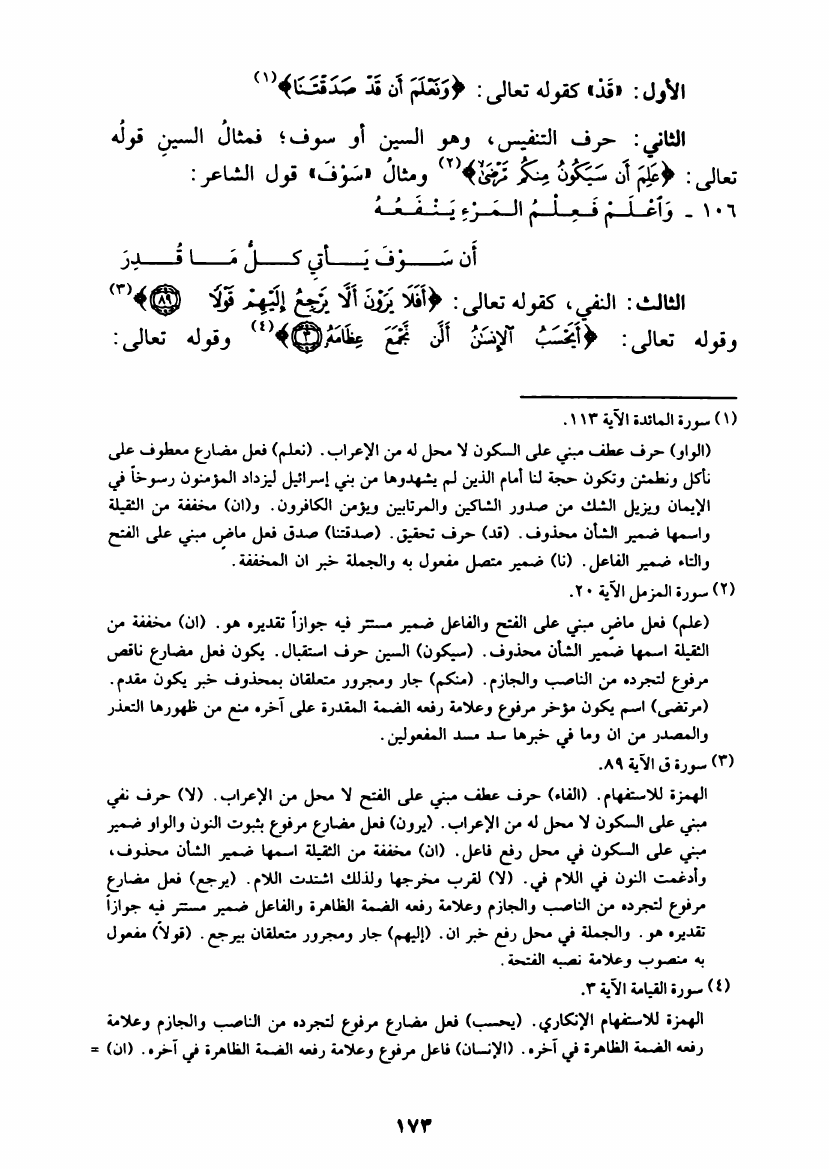 الأول: «قَدْ» كقوله تعالى: ﴿وَنَعْلَمَ أَن قَدْ صَدَقْتَنَا﴾(١)
الثاني: حرف التنفيس، وهو السين أو سوف؛ فمثالُ السينِ قولُه
تعالى: ﴿عَلِمَ أَن سَيَكُونُ مِنكُم مَّرْضَىٰ﴾(٢) ومثالُ «سَوْفَ» قول الشاعر:
١٠٦ ـ وَٱعْلَمْ فَعِلْمُ المَرْءِ يَنْفَعُهُ
أَن سَوْفَ يَأتي كلُّ مَا قُدِرَ
الثالث: النفي، كقوله تعالى: ﴿أَفَلَا يَرَوْنَ أَلَّا يَرْجِعُ إِلَيْهِمْ قَوْلًا ٨٩﴾(٣)
وقوله تعالى: ﴿أَيَحْسَبُ ٱلْإِنسَٰنُ أَلَّن نَّجْمَعَ عِظَامَهُۥ ٣﴾(٤) وقوله تعالى:
(١) سورة المائدة الآية ١١٣.
(الواو) حرف عطف مبني على السكون لا محل له من الإعراب. (نعلم) فعل مضارع معطوف على
نأكل ونطمئن وتكون حجة لنا أمام الذين لم يشهدوها من بني إسرائيل ليزداد المؤمنون رسوخاً في
الإيمان ويزيل الشك من صدور الشاكين والمرتابين ويؤمن الكافرون. و(ان) مخففة من الثقيلة
واسمها ضمير الشأن محذوف. (قد) حرف تحقيق. (صدقتنا) صدق فعل ماضٍ مبني على الفتح
والتاء ضمير الفاعل. (نا) ضمير متصل مفعول به والجملة خبر ان المخففة.
(٢) سورة المزمل الآية ٢٠.
(علم) فعل ماضٍ مبني على الفتح والفاعل ضمير مستتر فيه جوازاً تقديره هو. (ان) مخففة من
الثقيلة اسمها ضمير الشأن محذوف. (سيكون) السين حرف استقبال. يكون فعل مضارع ناقص
مرفوع لتجرده من الناصب والجازم. (منكم) جار ومجرور متعلقان بمحذوف خبر يكون مقدم.
(مرتضى) اسم يكون مؤخر مرفوع وعلامة رفعه الضمة المقدرة على آخره منع من ظهورها التعذر
والمصدر من ان وما في خبرها سد مسد المفعولين.
(٣) سورة ق الآية ٨٩.
الهمزة للاستفهام. (الفاء) حرف عطف مبني على الفتح لا محل من الإعراب. (لا) حرف نفي
مبني على السكون لا محل له من الإعراب. (يرون) فعل مضارع مرفوع بثبوت النون والواو ضمير
مبني على السكون في محل رفع فاعل. (ان) مخففة من الثقيلة اسمها ضمير الشأن محذوف،
وأدغمت النون في اللام في. (لا) لقرب مخرجها ولذلك اشتدت اللام. (يرجع) فعل مضارع
مرفوع لتجرده من الناصب والجازم وعلامة رفعه الضمة الظاهرة والفاعل ضمير مستتر فيه جوازاً
تقديره هو. والجملة في محل رفع خبر ان. (إليهم) جار ومجرور متعلقان بيرجع. (قولاً) مفعول
به منصوب وعلامة نصبه الفتحة.
(٤) سورة القيامة الآية ٣.
الهمزة للاستفهام الإنكاري. (يحسب) فعل مضارع مرفوع لتجرده من الناصب والجازم وعلامة
رفعه الضمة الظاهرة في آخره. (الإنسان) فاعل مرفوع وعلامة رفعه الضمة الظاهرة في آخره. (ان) =
١٧٣